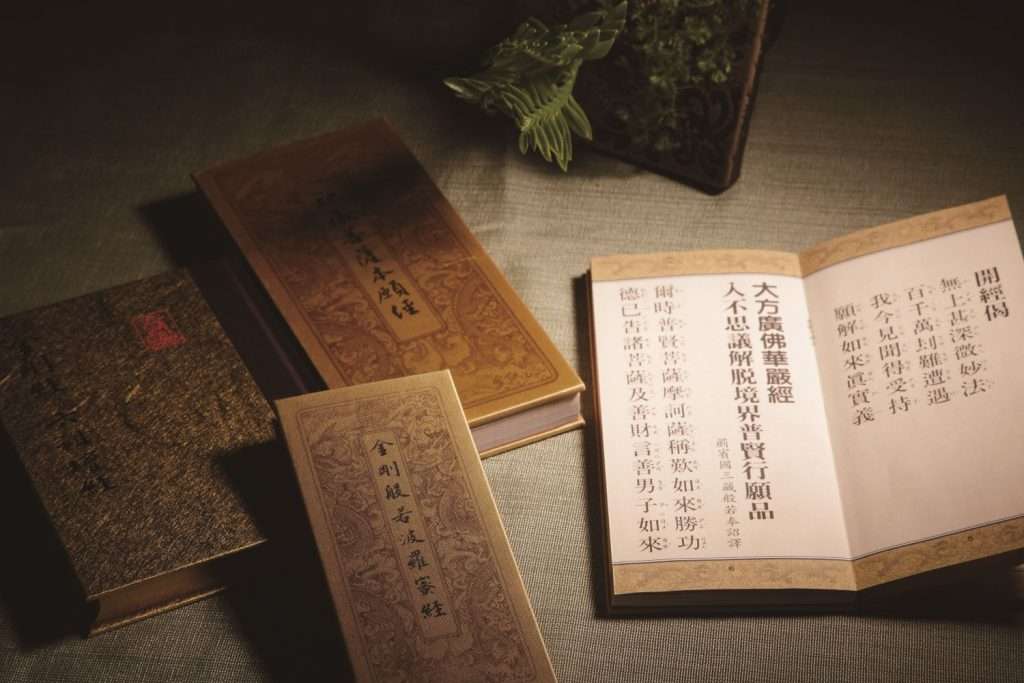 開經偈
無上甚深微妙法
百千萬劫難遭遇
我今見聞得受持
願解如來眞實義
5
大方廣佛華嚴經
入不思議解脫境界普賢行願品
罽賓國三藏般若奉詔譯
爾時普賢菩薩摩訶薩稱歎如來勝功
德已告諸菩薩及善財言善男子如來
6
菩薩本願經
金剛般若波羅蜜經
經